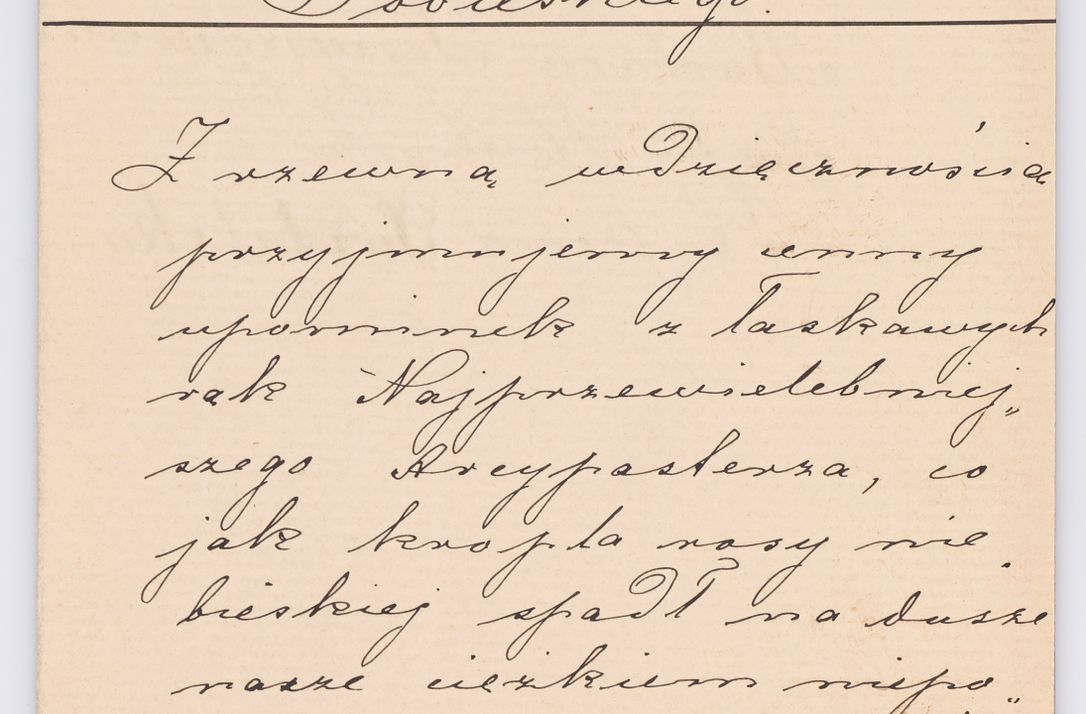 Sobieskiego.
Z rzewną wdzięcznością
przyjmujemy cenny
upominek z łaskawych
rąk Najprzewielebniej„
szego Arcypasterza, co
jak kropla rosy nie
bieskiej spadł na dusze
nasze ciężkiem niepo„